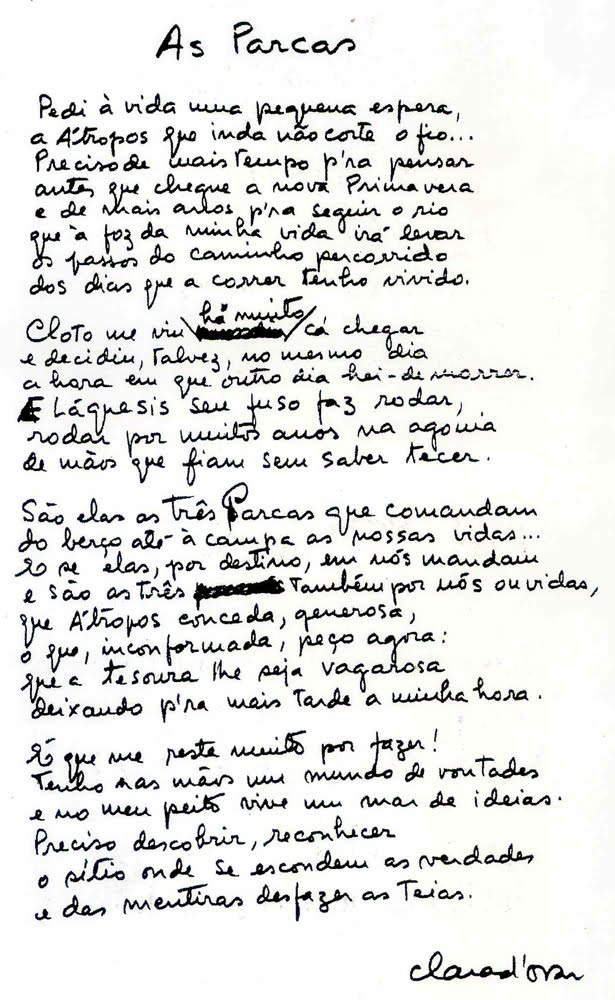 As Parcas
Pedi à vida uma pequena espera,
a Átropos que inda não corte o fio...
Preciso de mais tempo p'ra pensar
antes que chegue a nova Primavera
e de mais anos p'ra seguir o rio
que à foz da minha vida irá levar
os passos do caminho percorrido
dos dias que a correr tenho vivido.
há muito
Cloto me viu cá chegar
e decidiu, talvez, no mesmo dia
a hora em que outro dia hei-de morrer.
E Láquesis seu fuso faz rodar,
rodar por muitos anos na agonia
de mãos que fiam sem saber tecer.
São elas as três Parcas que comandam
do berço até à campa as nossas vidas...
E se elas, por destino, em nós mandam
e são as três também por nós ouvidas,
que Átropos conceda, generosa,
o que, inconformada, peço agora:
que a tesoura lhe seja vagarosa
deixando p'ra mais tarde a minha hora.
É que me resta muito por fazer!
Tenho nas mãos um mundo de vontades
e no meu peito vive um mar de ideias.
Preciso descobrir, reconhecer
o sítio onde se escondem as verdades
e das mentiras desfazer as teias.